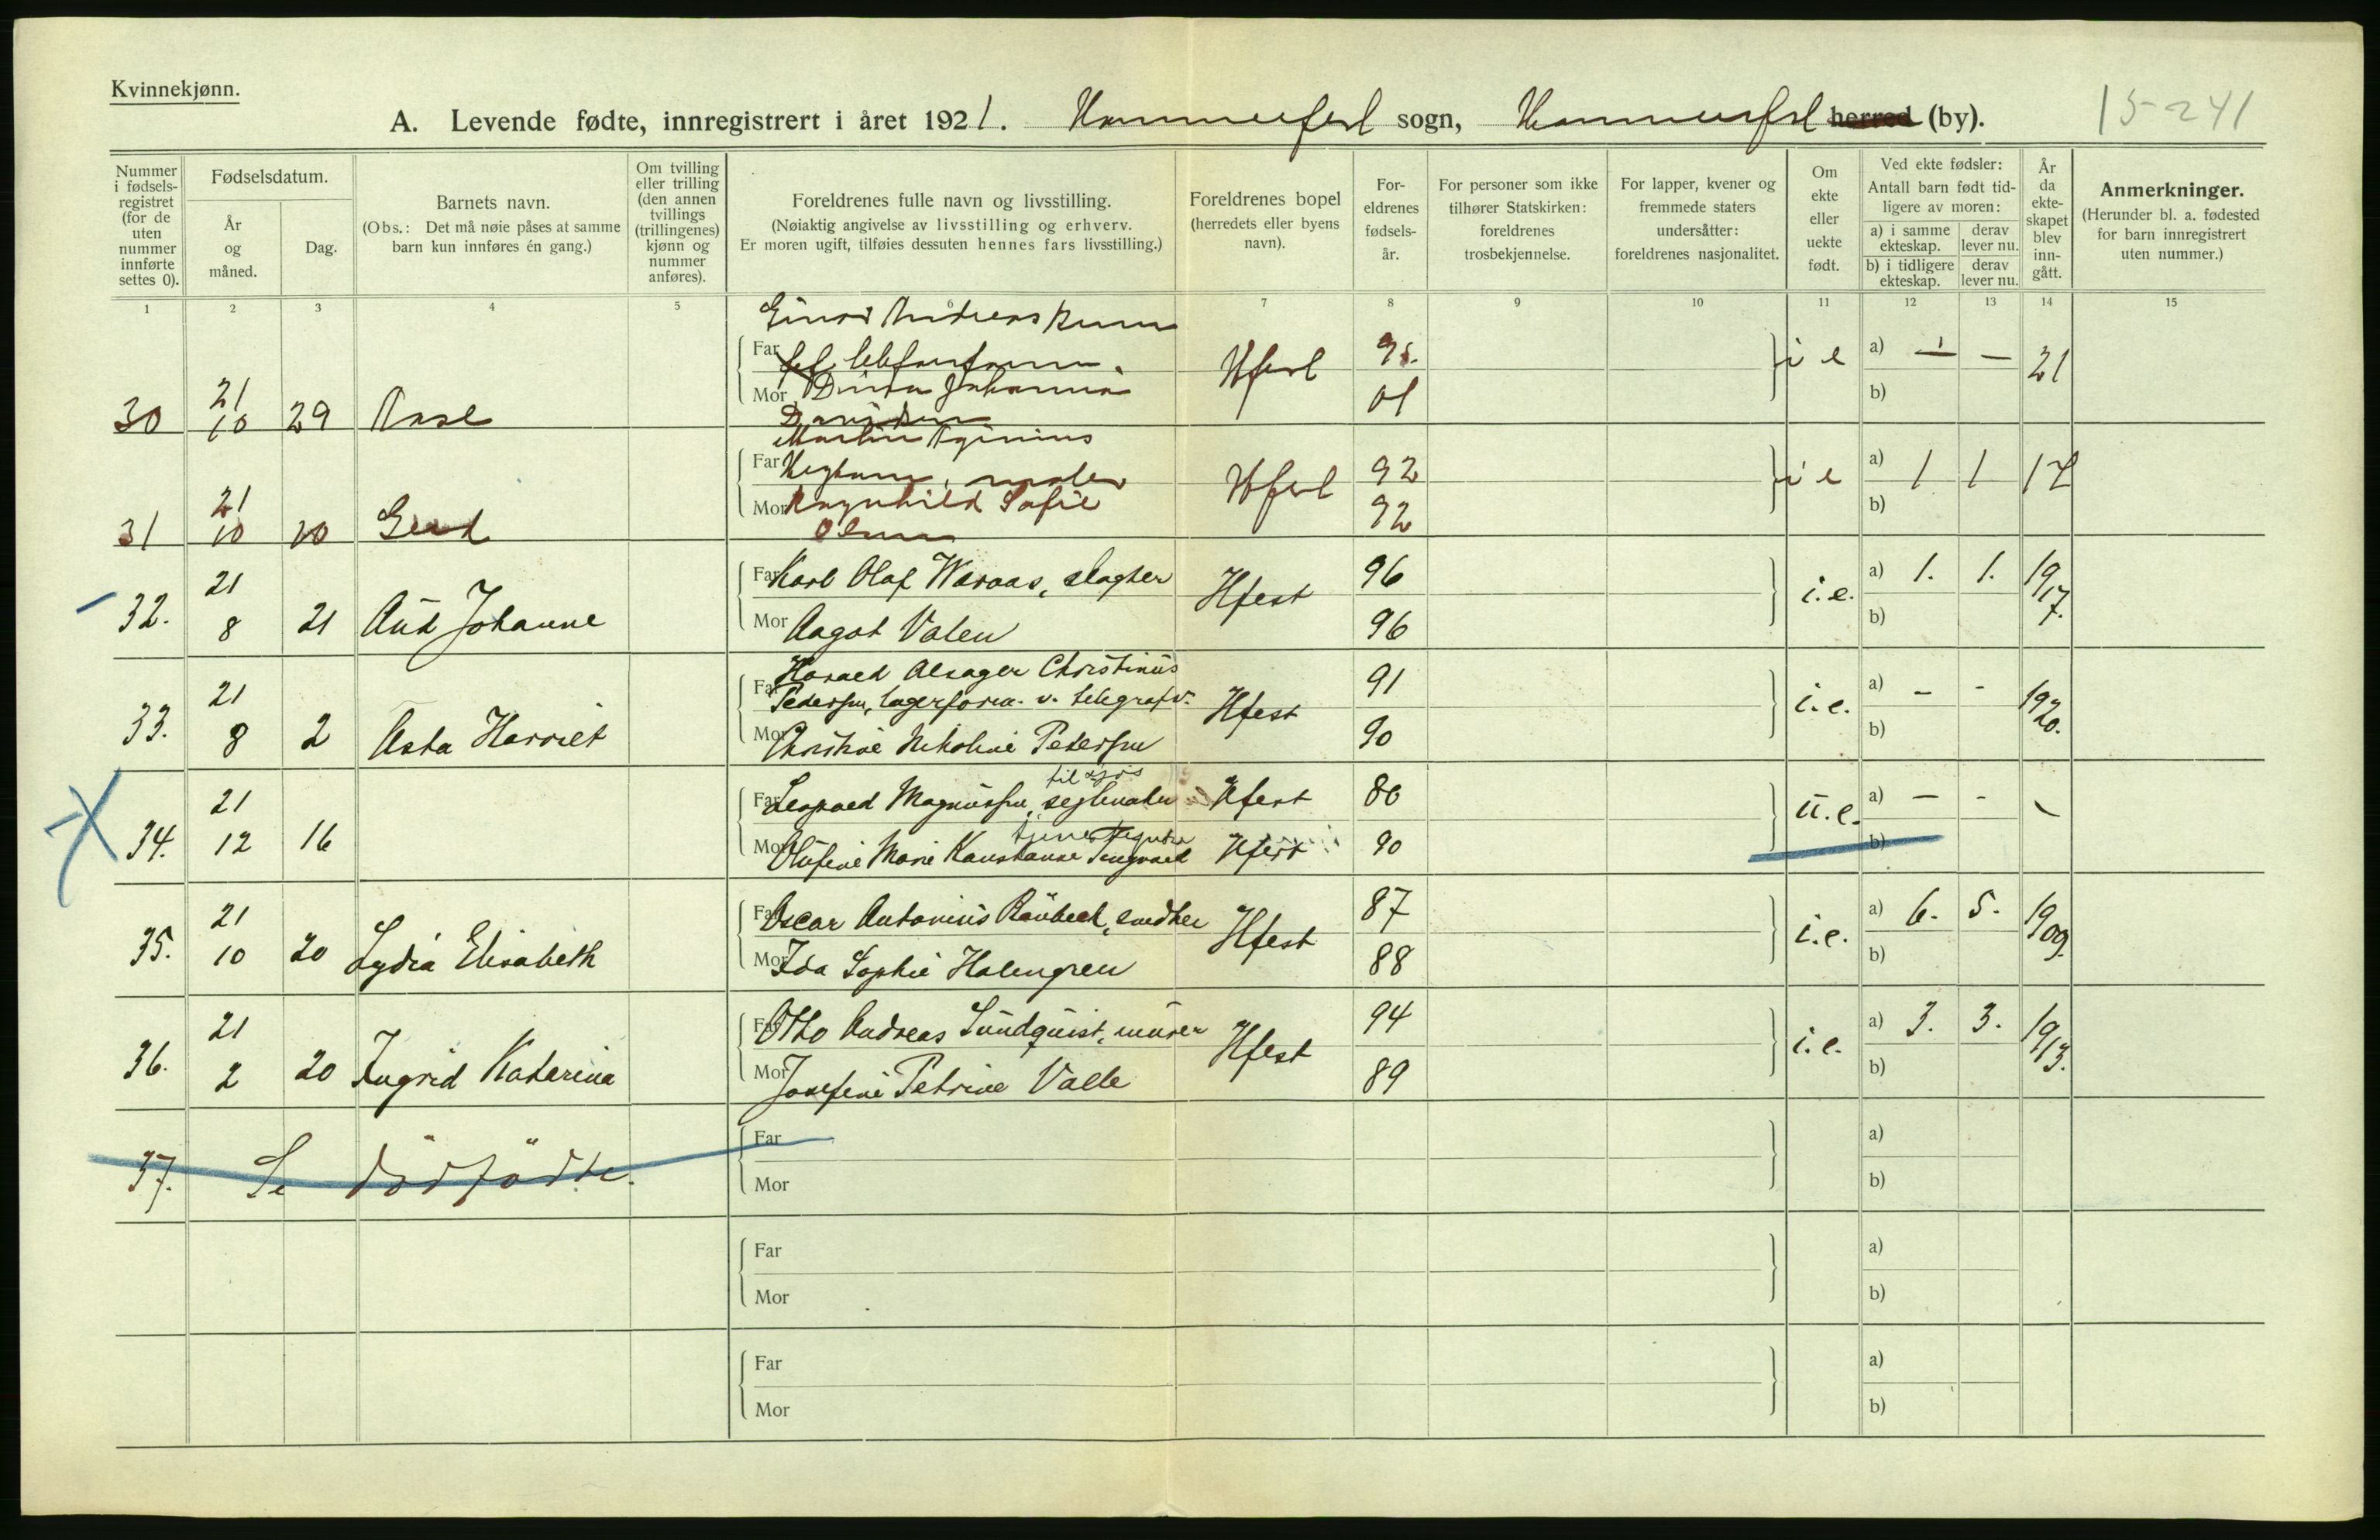 Kvinnekjønn.
A. Levende fødte, innregistrert i året 1921. Hammerfest sogn, Hammerfest herred (by). 15-241
Nummer i fødsels-registret (for de uten nummer innførte settes 0).
Fødselsdatum.
År og måned.
Dag.
Barnets navn.
(Obs.: Det må nøie påses at samme barn kun innføres én gang.)
Om tvilling eller trilling (den annen tvillings (trillingenes) kjønn og nummer anføres).
Foreldrenes fulle navn og livsstilling.
(Nøiaktig angivelse av livsstilling og erhverv.
Er moren ugift, tilføies dessuten hennes fars livsstilling.)
Foreldrenes bopel
(herredets eller byens navn).
For-eldrenes fødsels-år.
For personer som ikke tilhører Statskirken: foreldrenes trosbekjennelse.
For lapper, kvener og fremmede staters undersåtter: foreldrenes nasjonalitet.
Om ekte eller uekte født.
Ved ekte fødsler:
Antall barn født tid-ligere av moren:
a) i samme ekteskap.
derav lever nu.
b) i tidligere ekteskap.
derav lever nu.
År da ekte-skapet blev inn-gått.
Anmerkninger.
(Herunder bl. a. fødested for barn innregistrert uten nummer.)
1 2 3 4 5 6 7 8 9 10 11 12 13 14 15
Einar Andreas
Far
Hfest 95. i e a) - - 21
30 21 10 29 Aase
Mor Dina Johanna 01 b)
Davidsen
Martin
Far maler Hfest 92 i e a) 1 1 17
31 21 10 10 Gerd
Mor Ragnhild Sofie 92 b)
Olsen
Far Karl Olaf Waraas, slagter Hfest 96 i.e. a) 1. 1. 1917.
32. 21 8 21 Aud Johanne
Mor Aagot Valen 96 b)
Harald Alsager Christinus
Far Pedersen, lagerforv. v. telegrafv. Hfest 91 i.e. a) - - 1920.
33. 21 8 2 Asta Harriet
Mor Christine Nikoline Pedersen 90 b)
til sjøs
Far Leopold Magnussen, Hfest 80 u.e. a) - - -
34. 21 12 16
tjener
Mor Olufine Marie Konstanse Hfest 90 b)
Far Oscar Antonius Raubeck, snedker Hfest 87 i.e. a) 6. 5. 1909.
35. 21 10 20 Lydia Elisabeth
Mor Ida Sophie Holmgren 88 b)
Far Otto Andreas Sundquist, murer Hfest 94 i.e. a) 3. 3. 1913.
36. 21 2 20 Ingrid Katarina
Mor Josefine Petrine Valle 89 b)
Far a)
37. Se dödfödte.
Mor b)
Far a)
Mor b)
Far a)
Mor b)